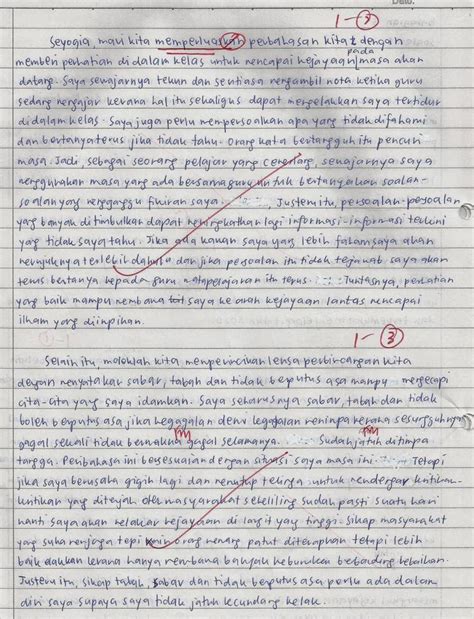 1-③
Seyogia, mari kita memperluaskan perbahasan kita dengan
memberi perhatian di dalam kelas untuk mencapai kejayaan pada masa akan
datang. Saya sewajarnya tekun dan sentiasa mengambil nota ketika guru
sedang mengajar kerana hal itu sekaligus dapat mengelakkan saya tertidur
di dalam kelas. Saya juga perlu mempersoalkan apa yang tidak difahami
dan bertanya terus jika tidak tahu. Orang kata bertangguh itu pencuri
masa. Jadi, sebagai seorang pelajar yang cemerlang, sewajarnya saya
menggunakan masa yang ada bersama guru untuk bertanyakan soalan-
soalan yang mengganggu fikiran saya. Justeru itu, persoalan-persoalan
yang banyak ditimbulkan dapat meningkatkan lagi informasi-informasi terkini
yang tidak saya tahu. Jika ada kawan saya yang lebih faham saya akan
merujuknya terlebih dahulu dan jika persoalan itu tidak terjawab saya akan
terus bertanya kepada guru matapelajaran itu terus. Tuntasnya, perhatian
yang baik mampu membawa saya ke arah kejayaan lantas mencapai
ilham yang diimpikan.
1-③
Selain itu, moleklah kita memperincikan lensa perbincangan kita
dengan menyatakan sabar, tabah dan tidak berputus asa mampu mengecapi
cita-cita yang saya idamkan. Saya seharusnya sabar, tabah dan tidak
boleh berputus asa jika kegagalan demi kegagalan menimpa kerana sesungguhnya
gagal sekali tidak bermakna gagal selamanya. Sudah jatuh ditimpa
tangga. Peribahasa ini bersesuaian dengan situasi saya masa ini. Tetapi
jika saya berusaha gigih lagi dan menutup telinga untuk mendengar kritikan-
kritikan yang ditujah oleh masyarakat sekeliling sudah pasti suatu hari
nanti saya akan melakar kejayaan di langit yang tinggi. Sikap masyarakat
yang suka menjaga tepi kain orang memang patut diterapkan tetapi lebih
baik elakkan kerana hanya membawa banyak keburukan berbanding kebaikan.
Justeru itu, sikap tabah, sabar dan tidak berputus asa perlu ada dalam
diri saya supaya saya tidak jatuh kecundang kelak.